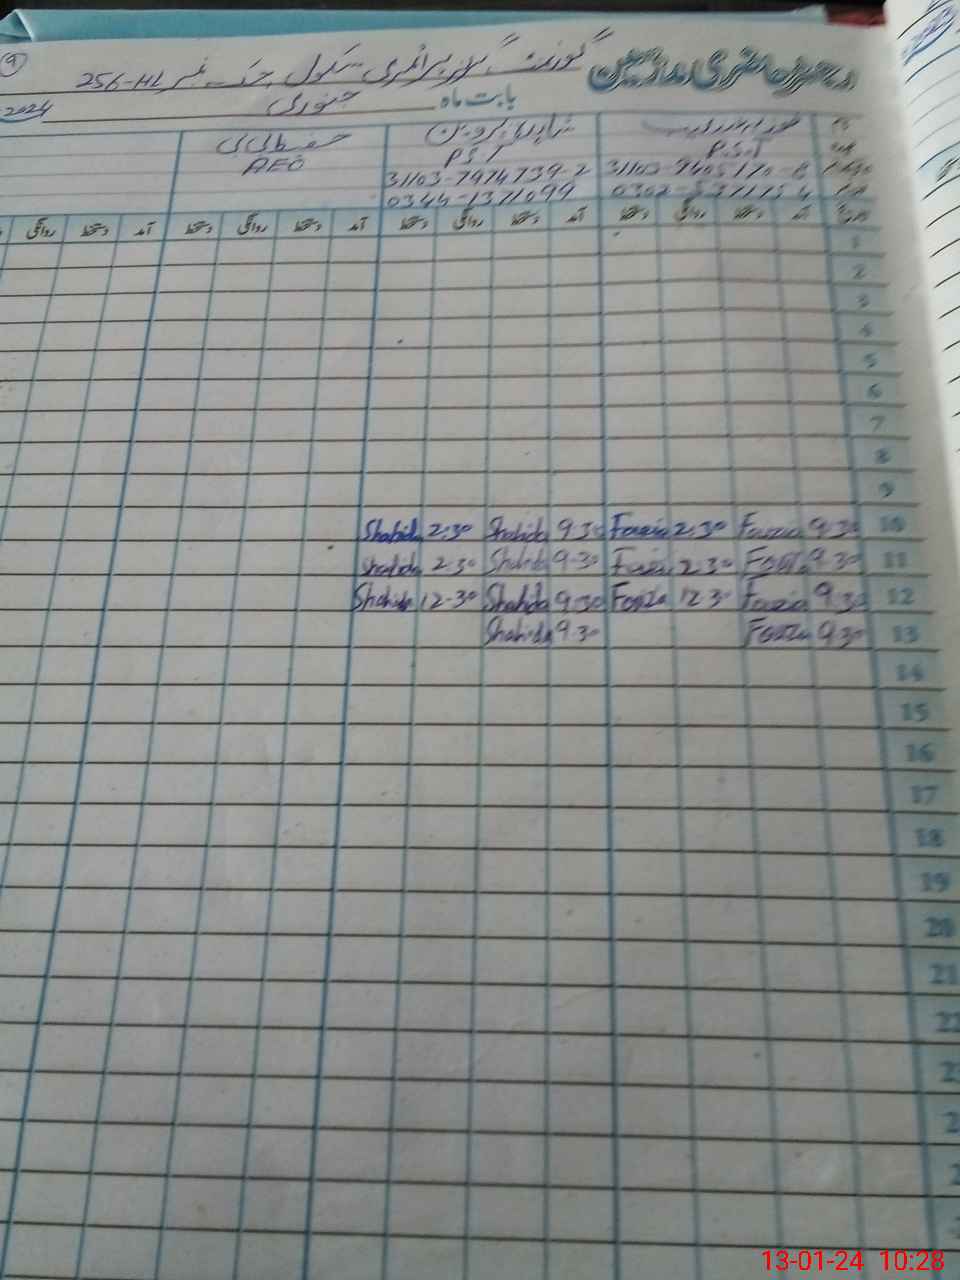 رجسٹر حاضری ملازمین گورنمنٹ گرلز پرائمری سکول چک نمبر 256-HL
9
بابت ماہ جنوری 2024
P.S.T
31103-9405170-8
شاہدہ پروین
P.S.T
31103-7974739-2
0344-1371099
AEO
آمد دستخط روانگی دستخط آمد دستخط روانگی دستخط آمد دستخط روانگی دستخط آمد دستخط روانگی
1
2
3
4
5
6
7
8
9
10 9.30 Fauzia 2.30 Fauzia 9.30 Shahida 2.30 Shahida
11 9.30 Fauzia 2.30 Fauzia 9.30 Shahida 2.30 Shahida
12 9.30 Fauzia 12.30 Fauzia 9.30 Shahida 12-30 Shahida
13 9.30 Fauzia 9.30 Shahida
14
15
16
17
18
19
20
21
22
13-01-24 10:28